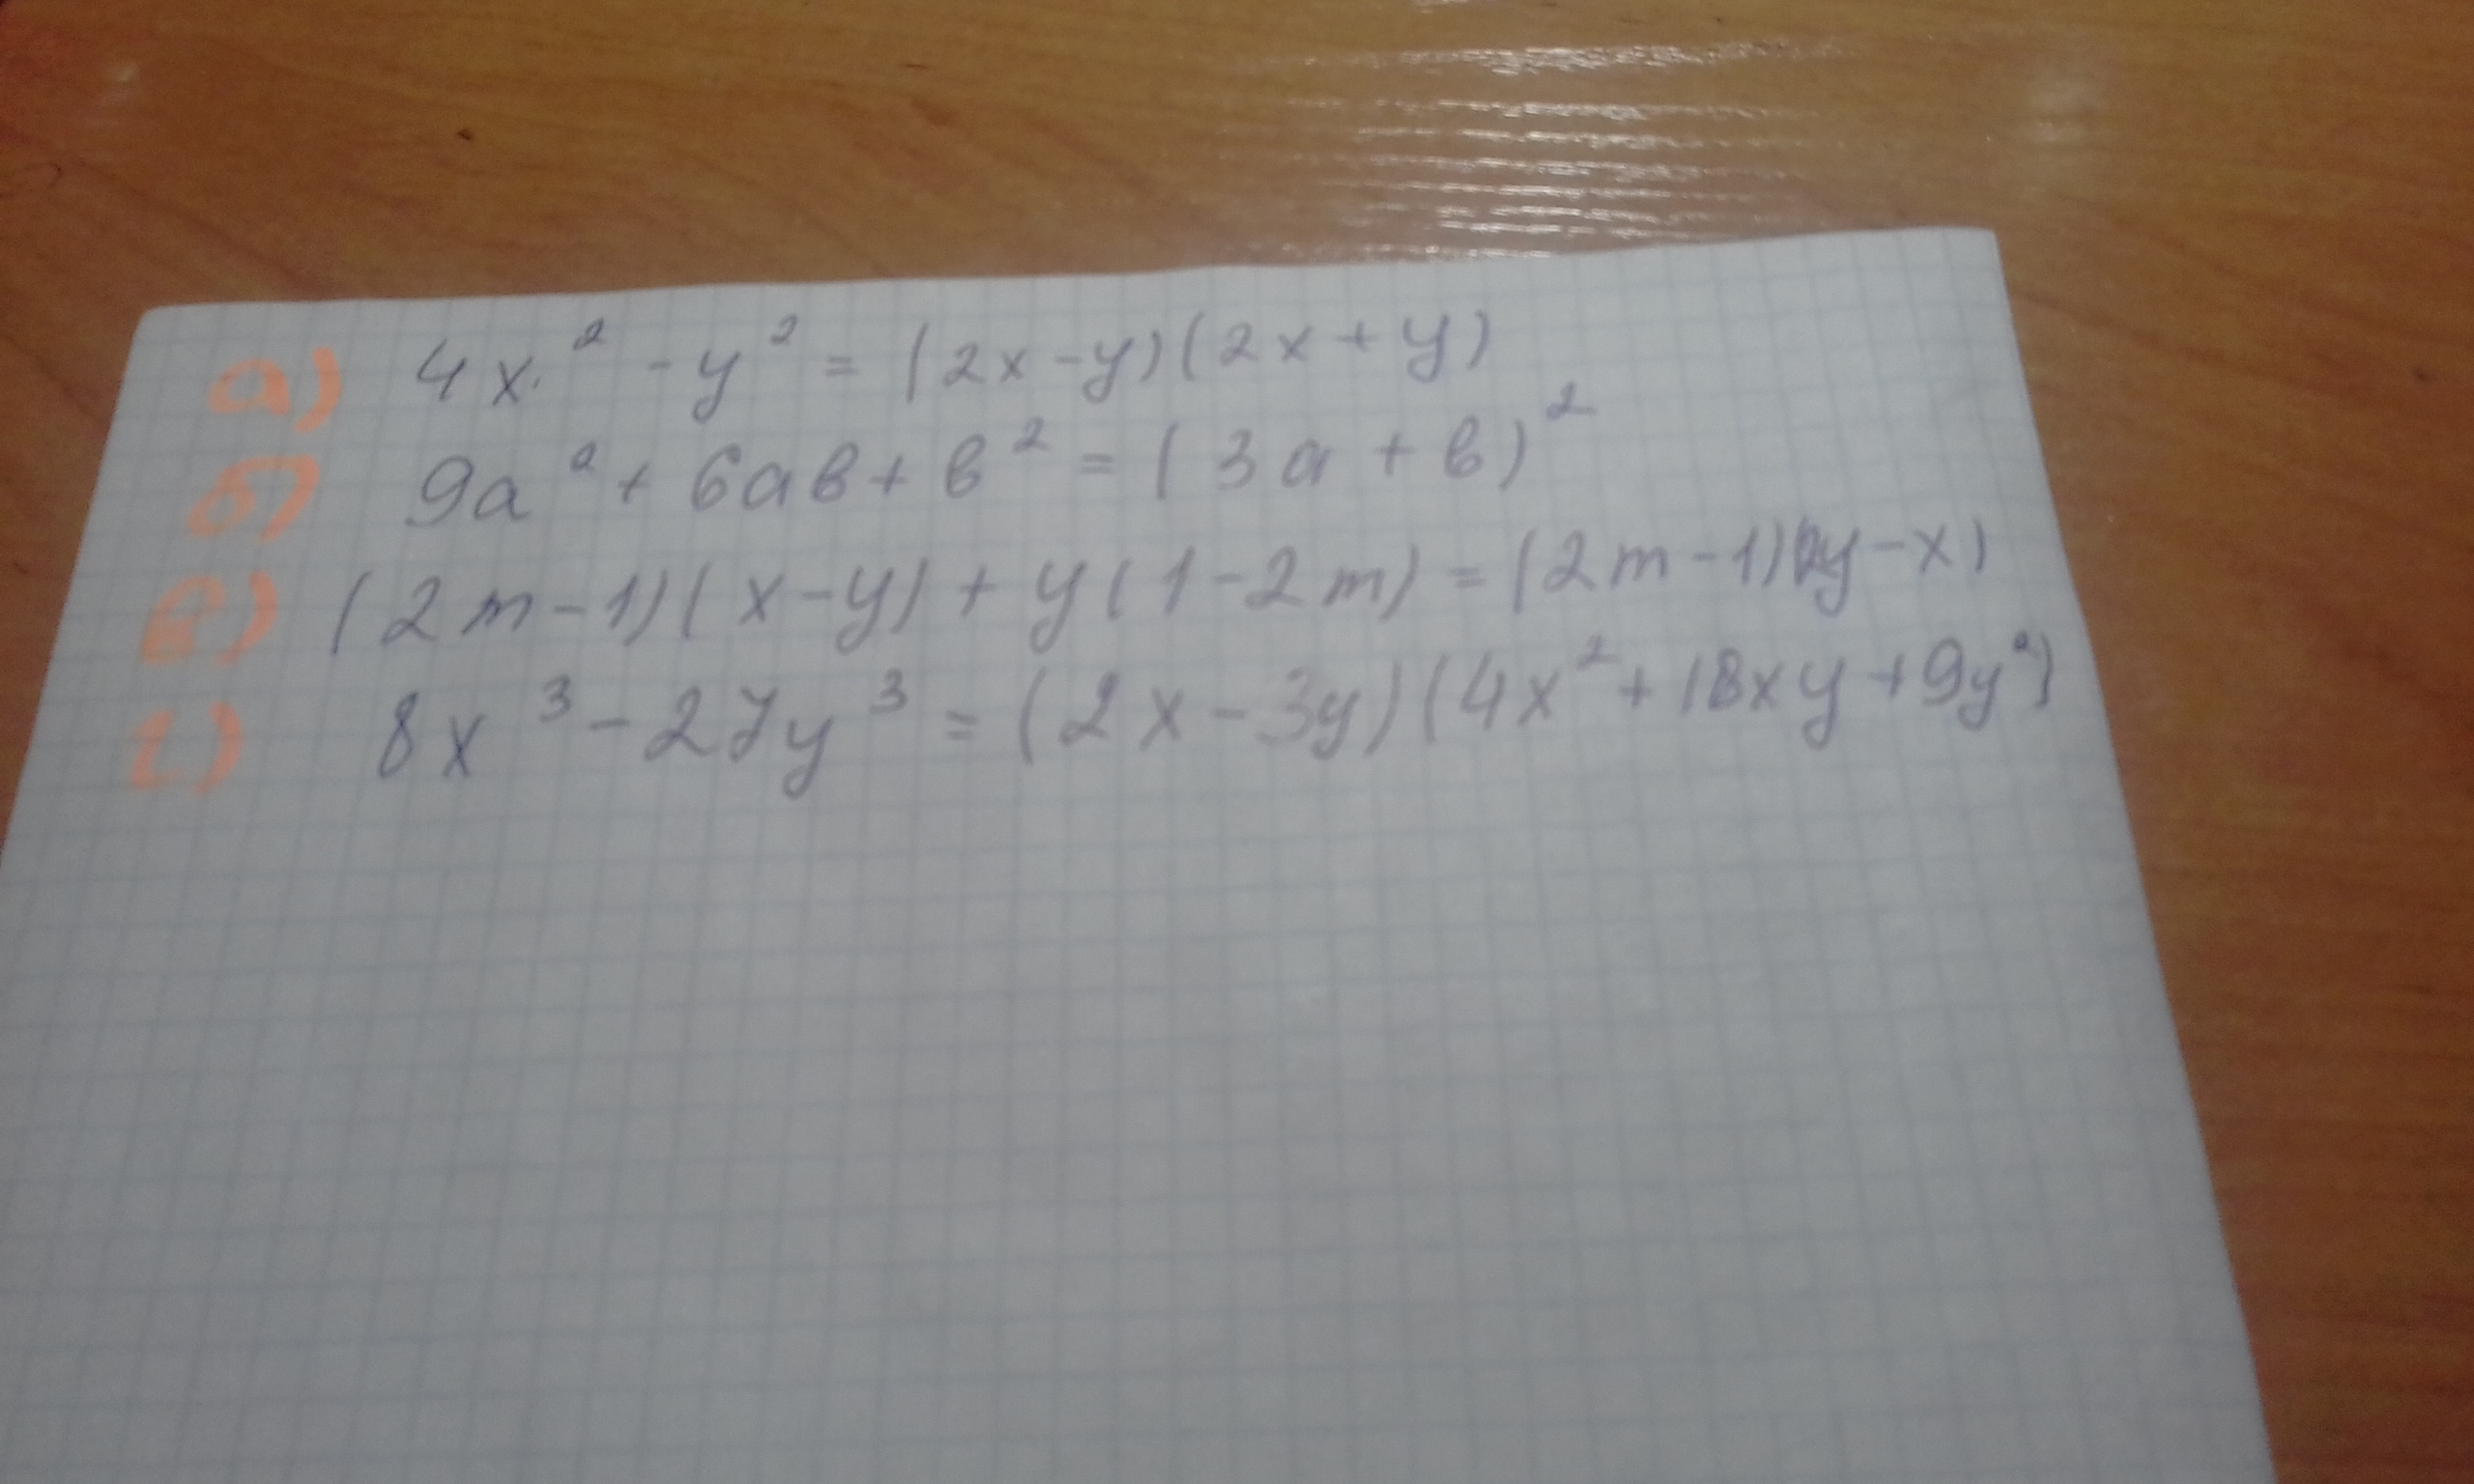 а) 4x² - y² = (2x - y)(2x + y)
б) 9a² + 6aв + в² = (3a + в)²
в) (2m - 1)(x - y) + y(1 - 2m) = (2m - 1)(2y - x)
г) 8x³ - 27y³ = (2x - 3y)(4x² + 18xy + 9y²)